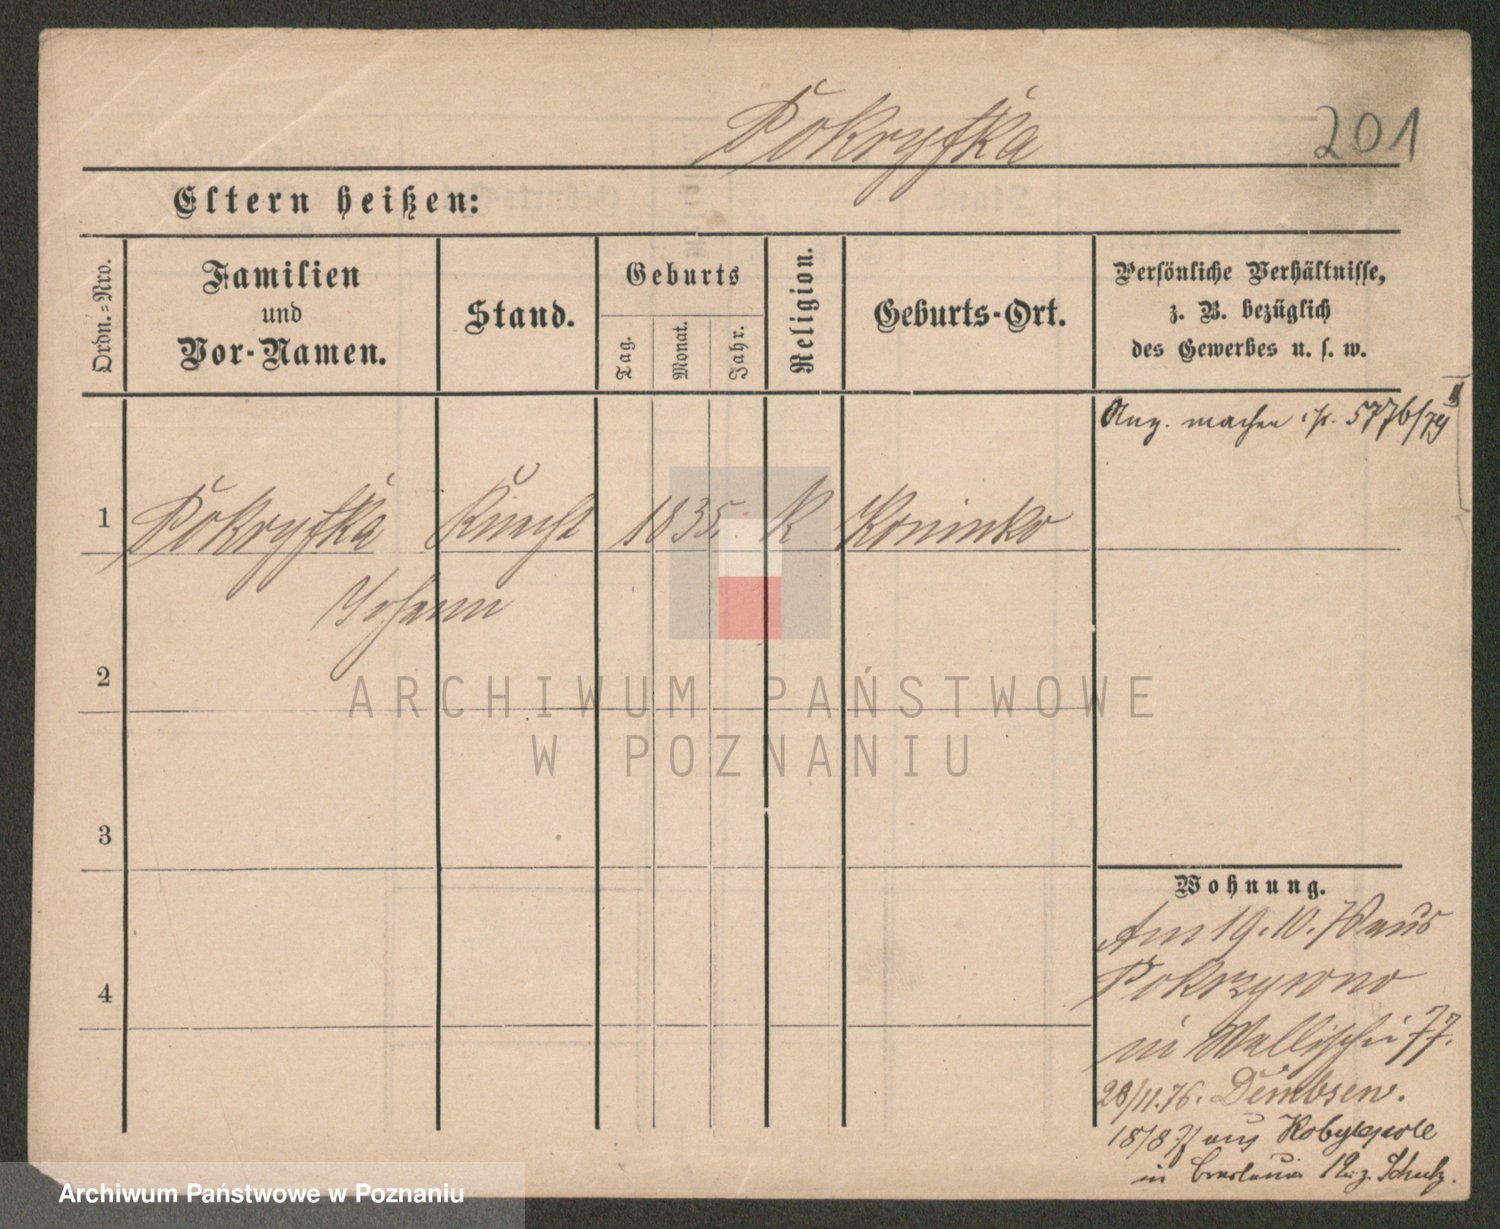 Pokryfka 201
Eltern heißen:
Ordn.-Nro.
Familien
und
Vor-Namen.
Stand.
Geburts
Tag.
Monat.
Jahr.
Religion.
Geburts-Ort.
Persönliche Verhältnisse,
z. B. bezüglich
des Gewerbes u. s. w.
Anz. machen 5776/79 II
1 Pokryfka Knecht 1835. K Koninko
Johann
2
3
4
Wohnung.
Am 19.10.76 aus
Pokrzywno
in Wallischei 77.
28/11.76. Dembsen.
18/8 77 aus Kobylepole
in Schulz.
ARCHIWUM PAŃSTWOWE
W POZNANIU
Archiwum Państwowe w Poznaniu